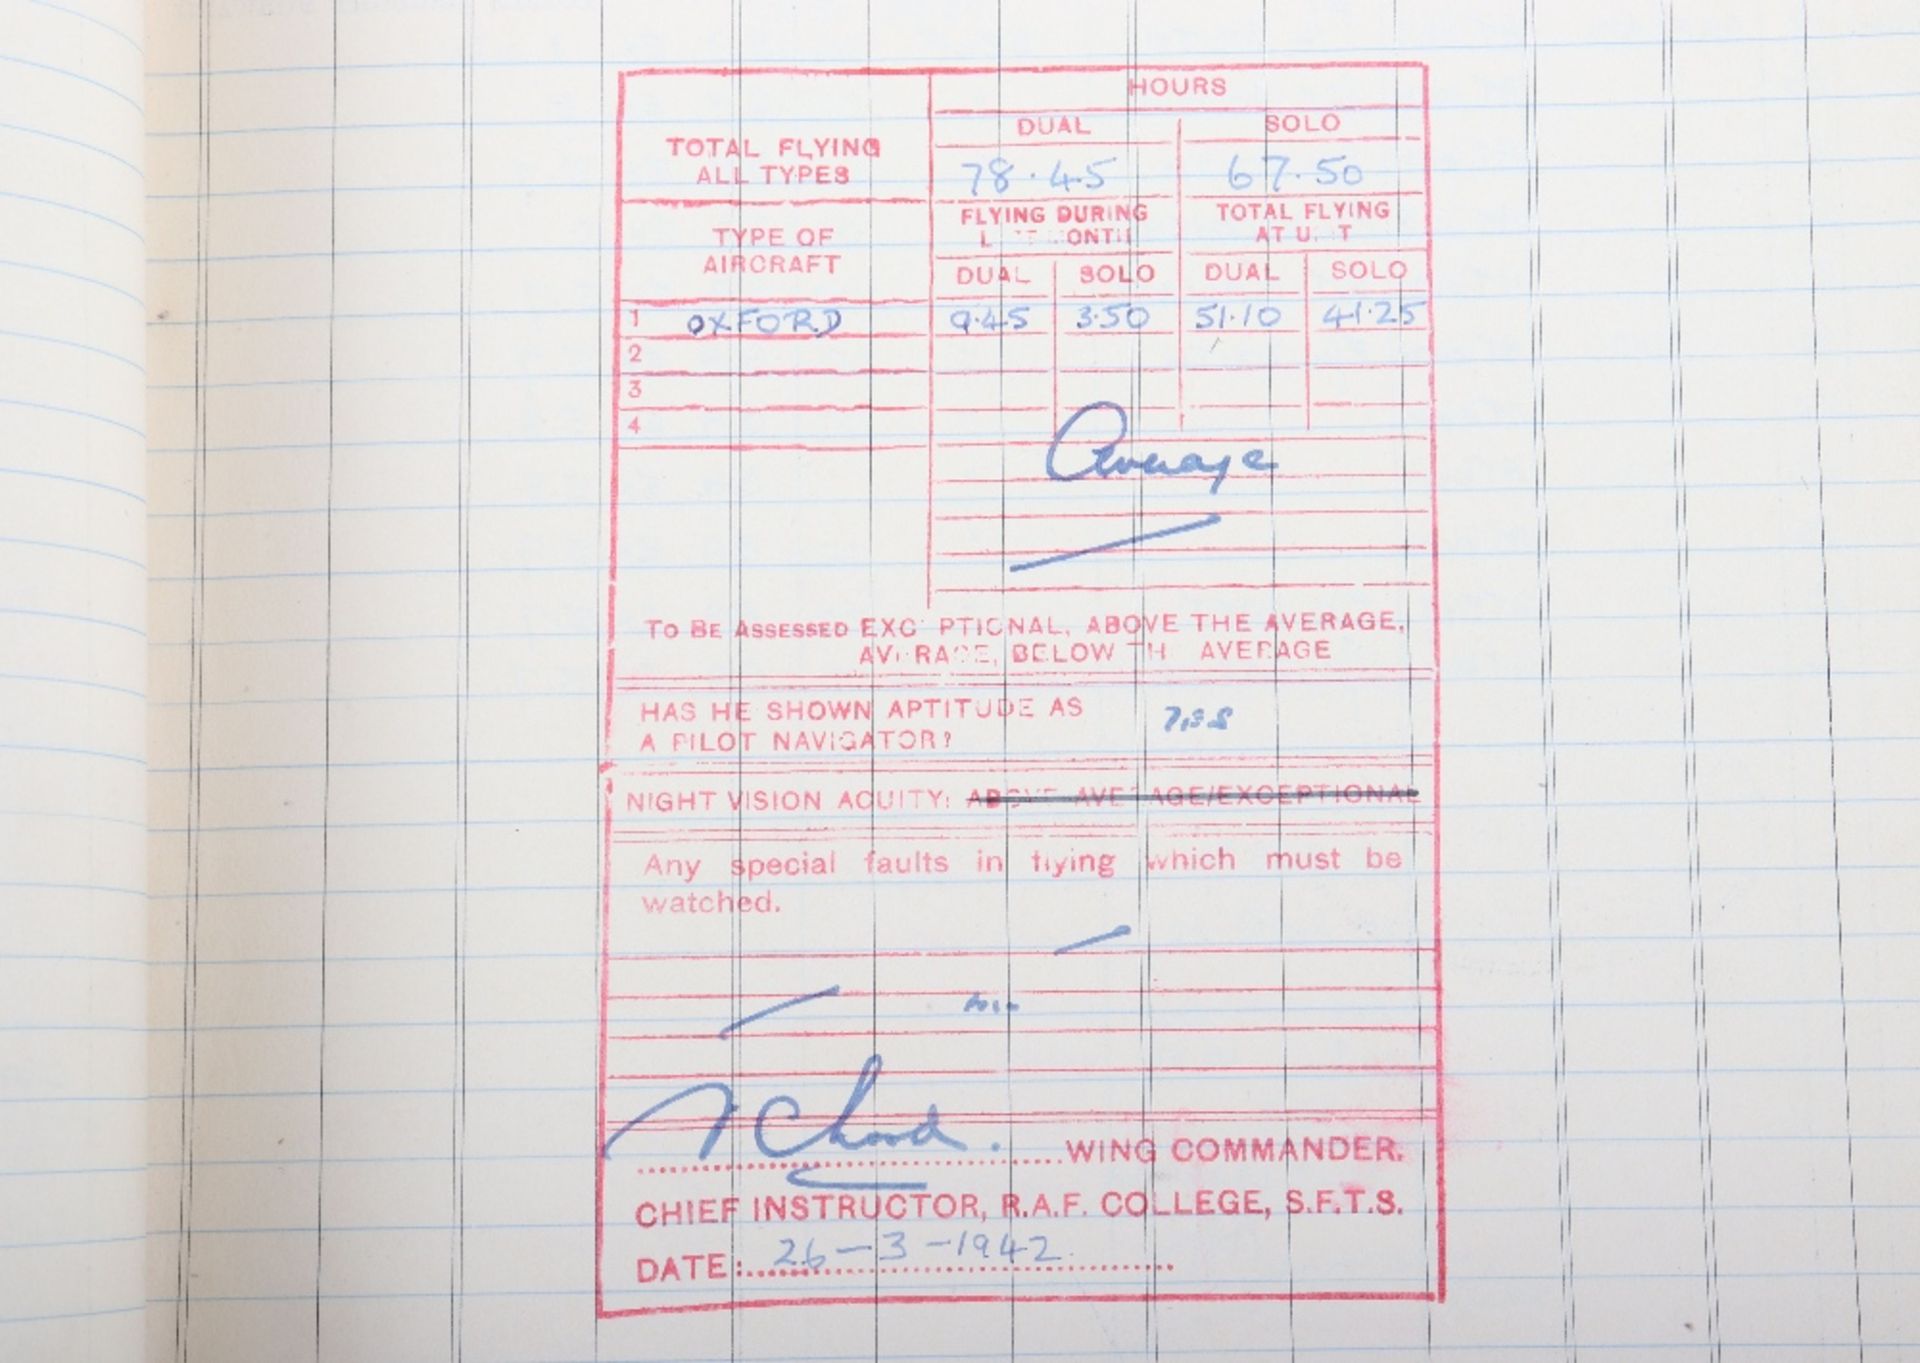 HOURS
DUAL SOLO
TOTAL FLYING
ALL TYPES
78.45 67.50
FLYING DURING TOTAL FLYING
L ONTH AT U T
TYPE OF
AIRCRAFT
DUAL SOLO DUAL SOLO
1 OXFORD 9.45 3.50 51.10 41.25
2
3
4
Average
TO BE ASSESSED EXC PTIONAL, ABOVE THE AVERAGE,
AV RAGE, BELOW TH AVERAGE
HAS HE SHOWN APTITUDE AS
A PILOT NAVIGATOR?
NIGHT VISION ACUITY: ABOVE AVERAGE/EXCEPTIONAL
Any special faults in flying which must be
watched.
WING COMMANDER.
CHIEF INSTRUCTOR, R.A.F. COLLEGE, S.F.T.S.
DATE: 26-3-1942